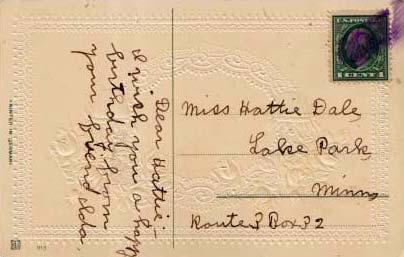 Dear Hattie-
I wish you a happy
birthday from
your friend Ida.
U.S. POSTAGE
1 CENT 1
Miss Hattie Dale
Lake Park,
Minn,
Route 3 Box 32
PRINTED IN GERMANY